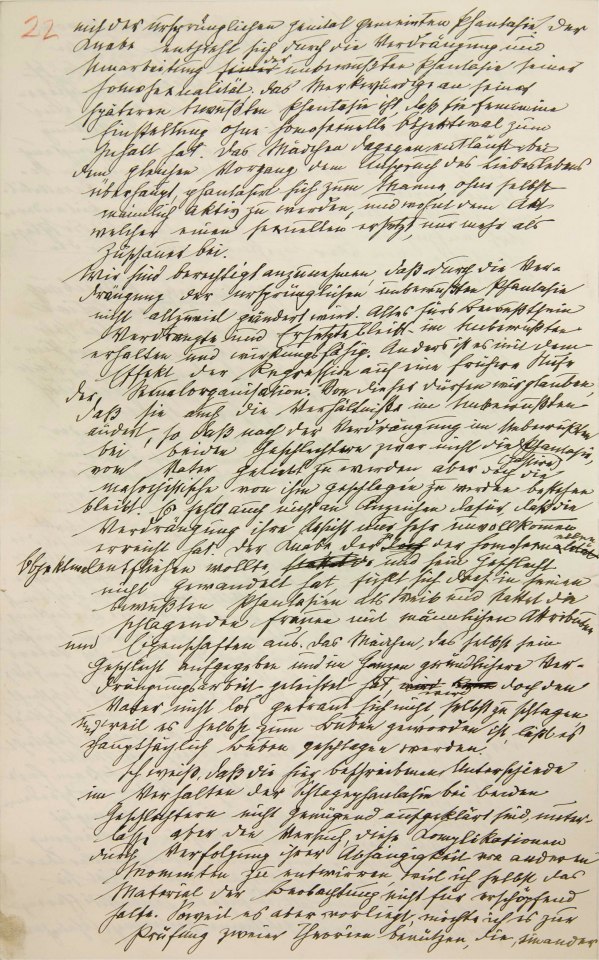 22
mit der ursprünglichen genital gemeinten Phantasie. Der
Knabe entzieht sich durch die Verdrängung und
Umarbeitung der unbewußten Phantasie seiner
Homosexualität. Das Merkwürdige an seiner
späteren bewußten Phantasie ist, daß sie feminine
Einstellung ohne homosexuelle Objektwal zum
Inhalt hat. Das Mädchen dagegen entläuft bei
dem gleichen Vorgang dem Anspruch des Liebeslebens
überhaupt, phantasirt sich zum Manne ohne selbst
männlich aktiv zu werden, und wohnt dem Akt
welcher einen sexuellen ersetzt, nur mehr als
Zuschauer bei.
Wir sind berechtigt anzunehmen, daß durch die Ver-
drängung der ursprünglichen unbewußten Phantasie
nicht allzuviel geändert wird. Alles fürs Bewußtsein
Verdrängte und Ersetzte bleibt im Unbewußten
erhalten und wirkungsfähig. Anders ist es mit dem
Effekt der Regression auf eine frühere Stufe
der Sexualorganisation. Von dieser dürfen wir glauben,
daß sie auch die Verhältniße im Unbewußten
ändert, so daß nach der Verdrängung im Unbewußten
bei beiden Geschlechtern zwar nicht die (passive) Phantasie,
vom Vater geliebt zu werden aber doch die
masochistische von ihm geschlagen zu werden bestehen
bleibt. Es fehlt auch nicht an Anzeichen dafür daß die
Verdrängung ihre Absicht nur sehr unvollkommen
erreicht hat. Der Knabe der der homosexuellen
Objektwal entfliehen wollte, und sein Geschlecht
nicht gewandelt hat fühlt sich doch in seinen
bewußten Phantasien als Weib und stattet die
schlagenden Frauen mit männlichen Attributen
und Eigenschaften aus. Das Mädchen, das selbst sein
Geschlecht aufgegeben und im Ganzen gründlichere Ver-
drängungsarbeit geleistet hat, wird doch den
Vater nicht los getraut sich nicht selbst zu schlagen
und weil es selbst zum Buben geworden ist, läßt es
hauptsächlich Buben geschlagen werden.
Ich weiß, daß die hier beschriebenen Unterschiede
im Verhalten der Schlagephantasie bei beiden
Geschlechtern nicht genügend aufgeklärt sind, unter-
lasse aber die Versuch, diese Komplikationen
durch Verfolgung ihrer Abhängigkeit von anderen
Momenten zu entwirren weil ich selbst das
Material der Beobachtung nicht für erschöpfend
halte. Soweit es aber vorliegt, möchte ich es zur
Prüfung zweier Theorien benützen, die, einander